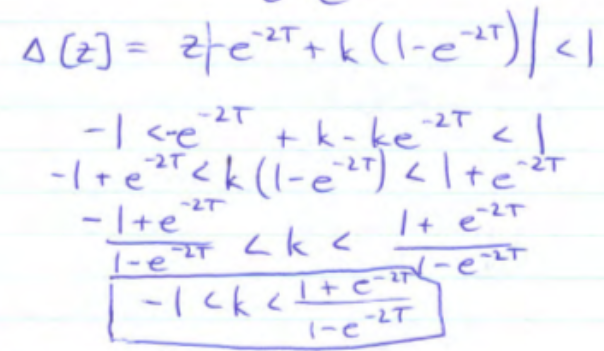 Δ[z] = z|-e^{-2T} + k(1-e^{-2T})| < 1
-1 < -e^{-2T} + k - ke^{-2T} < 1
-1 + e^{-2T} < k(1-e^{-2T}) < 1 + e^{-2T}
\frac{-1+e^{-2T}}{1-e^{-2T}} < k < \frac{1+e^{-2T}}{1-e^{-2T}}
-1 < k < \frac{1+e^{-2T}}{1-e^{-2T}}